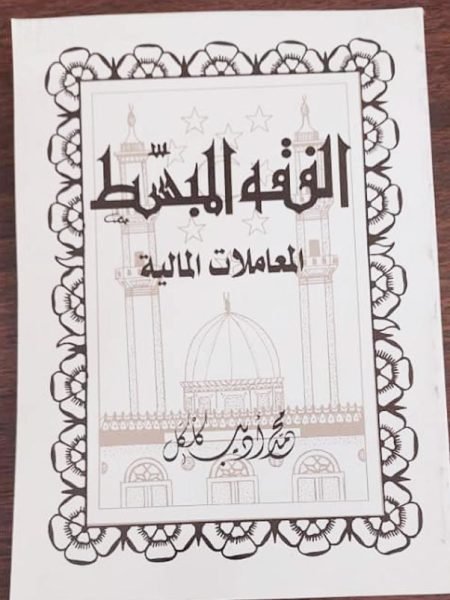 الفقه المبسّط
المعاملات المالية
محمد أديب كلكل